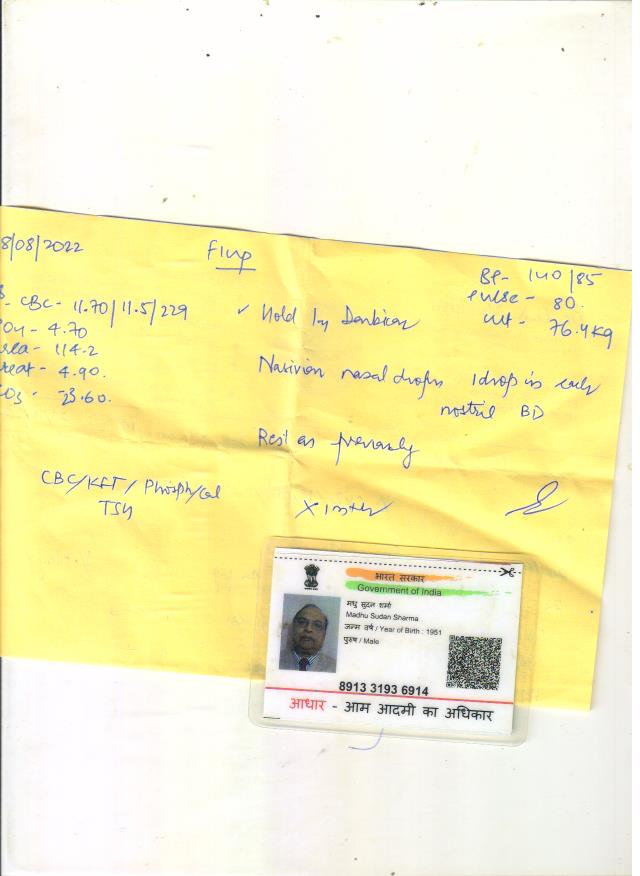 8/08/2022
F/up
BP- 140/85
pulse - 80.
wt - 76.4kg
- CBC- 11.70/11.5/229
- 4.70
- 114.2
- 4.90.
- 23.60.
✓ Hold Inj
nasal drops 1drop in each
nostril BD
Rest as previously
CBC/KFT/Phosph/Cal
TSH
भारत सरकार
Government of India
मधु सूदन शर्मा
Madhu Sudan Sharma
जन्म वर्ष / Year of Birth : 1951
पुरुष / Male
8913 3193 6914
आधार - आम आदमी का अधिकार